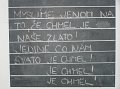 MYSLÍME JENOM NA
TO, ŽE CHMEL JE
NAŠE ZLATO!
JEDINÉ CO NÁM
SVATO JE CHMEL!
JE CHMEL!
JE CHMEL!